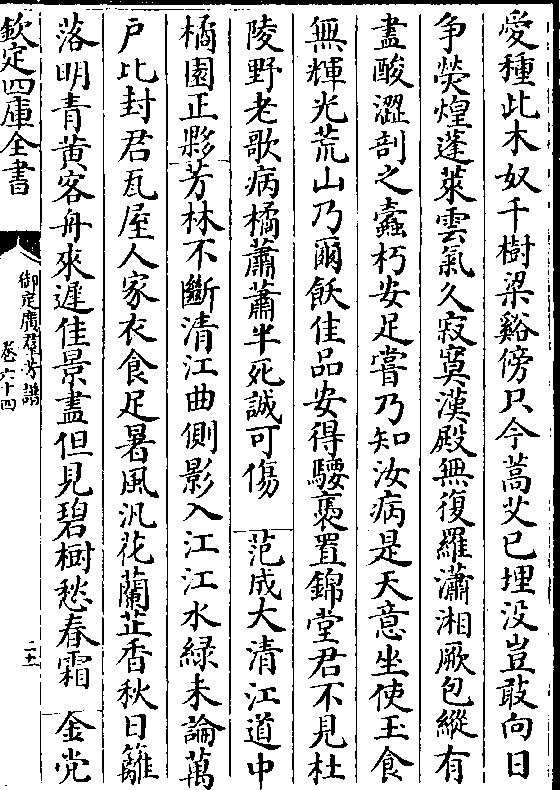 愛種此木奴千樹梁谿傍只今蒿艾已埋没豈敢向日
争熒煌蓬萊雲氣久寂寞漢殿無復羅瀟湘厥包縱有
盡酸澀剖之蠧朽安足嘗乃知汝病是天意坐使玉食
無輝光荒山乃爾飫佳品安得騕褭置錦堂君不見杜
陵野老歌病橘蕭蕭半死誠可傷 范成大清江道中
橘園正夥芳林不斷清江曲倒影入江江水緑未論萬
户比封君瓦屋人家衣食足暑風汎花蘭芷香秋日籬
落明青黄客舟來遲佳景盡但見碧樹愁春霜 金党
欽定四庫全書
御定廣羣芳譜
卷六十四
二十二